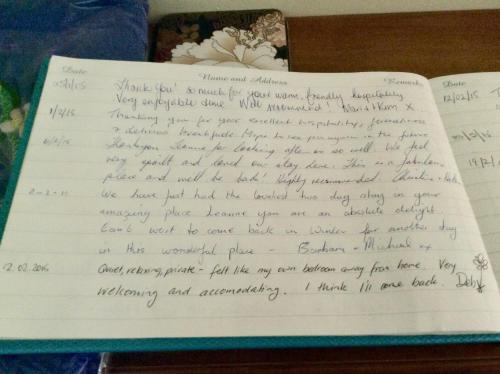 Date Name and Address Remarks
Thank you! so much for your warm, friendly hospitality.
Very enjoyable time Well recommend!
1/2/15 Thanking you for your excellent hospitality,
& delicious breakfasts. Hope to see you again in the future
Thankyou Leanne for looking after us so well. We feel
very spoilt and loved our stay here. This is a fabulous
place and we'll be back! Highly recommended.
We have just had the loveliest two day stay in your
amazing place Leanne you are an absolute delight.
Can't wait to come back in Winter for another stay
in this wonderful place - Barbara & Michael xx
12.02.2015 Quiet, relaxing, private - felt like my own bedroom away from home. Very
welcoming and accomodating. I think I'll come back. Deb
Date
12/02/15